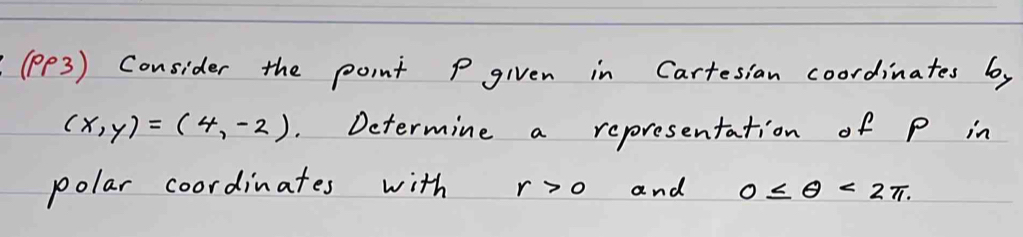 (PP3) Consider the point P given in Cartesian coordinates by
(x,y) = (4,-2). Determine a representation of P in
polar coordinates with r > 0 and 0 ≤ θ < 2π.